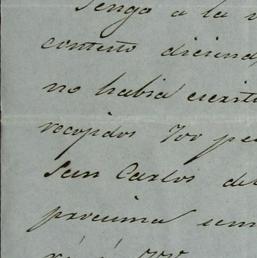 Tengo a la v
contesto diciend
no habia escrito
recojidos 700 pe
San Carlos de
procsima sem